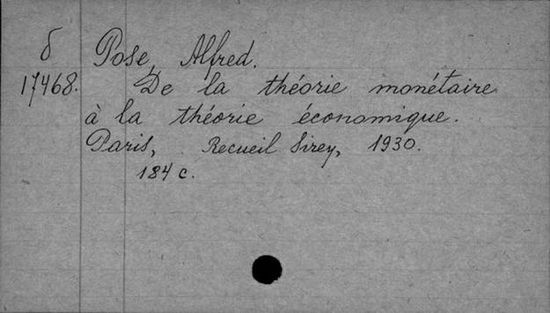 б Pose, Alfred.
17468. De la théorie monétaire
à la théorie économique.
Paris, Recueil Sirey, 1930.
184 c.